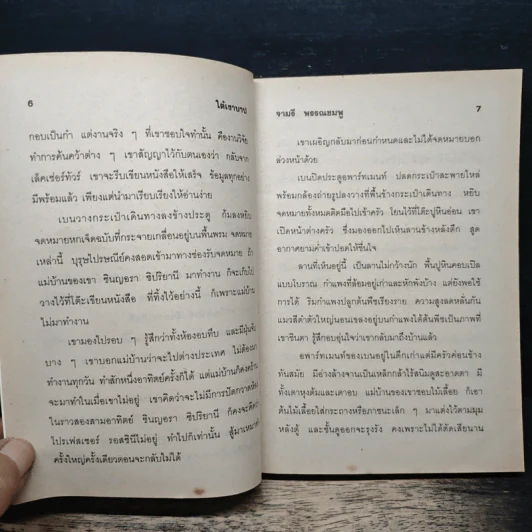 6
ใต้เงาบาป
กอบเป็นกำ แต่งานจริง ๆ ที่เขาชอบใจทำนั้น คืองานวิจัย
ทำการค้นคว้าต่าง ๆ เขาสัญญาไว้กับตนเองว่า กลับจาก
เล็คเช่อร์ทัวร์ เขาจะรีบเขียนหนังสือให้เสร็จ ข้อมูลทุกอย่าง
มีพร้อมแล้ว เพียงแต่นำมาเรียบเรียงให้อ่านง่าย
เบนวางกระเป๋าเดินทางลงข้างประตู ก้มลงหยิบ
จดหมายหกเจ็ดฉบับที่กระจายเกลื่อนอยู่บนพื้นพรม จดหมาย
เหล่านี้ บุรุษไปรษณีย์คงสอดเข้ามาทางช่องรับจดหมาย ถ้า
แม่บ้านของเขา ซินญอรา ชิปริยานี มาทำงาน ก็จะเก็บไป
วางไว้ที่โต๊ะเขียนหนังสือ ที่ทิ้งไว้อย่างนี้ ก็เพราะแม่บ้าน
ไม่มาทำงาน
เขามองไปรอบ ๆ รู้สึกว่าทั้งห้องอบทึบ และมีฝุ่นจับ
บาง ๆ เขาบอกแม่บ้านว่าจะไปต่างประเทศ ไม่ต้องมา
ทำงานทุกวัน ทำสักหนึ่งอาทิตย์ครั้งก็ได้ แต่แม่บ้านก็คงคร้าน
จะมาทำในเมื่อเขาไม่อยู่ เขาคิดว่าจะไม่มีการปัดกวาดห้อง
ในราวสองสามอาทิตย์ ซินญอรา ชิปริยานี ก็คงจะคิดว่า
โปรเฟสเซอร์ รอสซินีไม่อยู่ ทำไปก็เท่านั้น สู้มาเหมา
ครั้งใหญ่ครั้งเดียวตอนจะกลับไม่ได้
จามรี พรรณชมพู
7
เขาเผอิญกลับมาก่อนกำหนดและไม่ได้จดหมายบอก
ล่วงหน้าด้วย
เบนปิดประตูอพาร์ทเมนท์ ปลดกระเป๋าสะพายไหล่
พร้อมกล้องถ่ายรูปลงวางที่พื้นข้างกระเป๋าเดินทาง หยิบ
จดหมายทั้งหมดติดมือไปเข้าครัว โยนไว้ที่โต๊ะปูหินอ่อน เขา
เปิดหน้าต่างครัว ซึ่งมองออกไปเห็นลานข้างหลังตึก สูด
อากาศยามค่ำเข้าปอดให้ชื่นใจ
ลานที่เห็นอยู่นี้ เป็นลานไม่กว้างนัก พื้นปูหินคอบเปิล
แบบโบราณ กำแพงที่ล้อมอยู่เก่าและหักพังบ้าง แต่ยังพอใช้
การได้ ริมกำแพงปลูกต้นพืชเรียงราย ความสูงลดหลั่นกัน
แมวสีดำตัวใหญ่นอนเขลงอยู่บนกำแพงใต้ต้นพืชเป็นภาพที่
เขาชินตา รู้สึกอบอุ่นใจว่าเขากลับมาถึงบ้านแล้ว
อพาร์ทเมนท์ของเบนอยู่ในตึกเก่าแต่มีครัวค่อนข้าง
ทันสมัย มีอ่างล้างจานเป็นเหล็กกล้าไร้สนิมดูสะอาดตา มี
ทั้งเตาหุงต้มและเตาอบ แม่บ้านของเขาชอบไม้เลื้อย ก็เอา
ต้นไม้เลื้อยใส่กระถางหรือภาชนะเล็ก ๆ มาแต่งไว้ตามมุม
หลังตู้ และชั้นดูออกจะรุงรัง คงเพราะไม่ได้ตัดเสียนาน